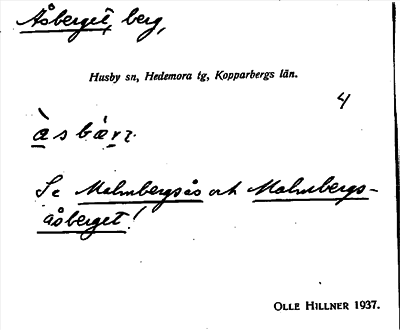 Åsberget, berg,
Husby sn, Hedemora tg, Kopparbergs län.
4
Se Malmbergsås och Malmbergs-
åsberget!
OLLE HILLNER 1937.